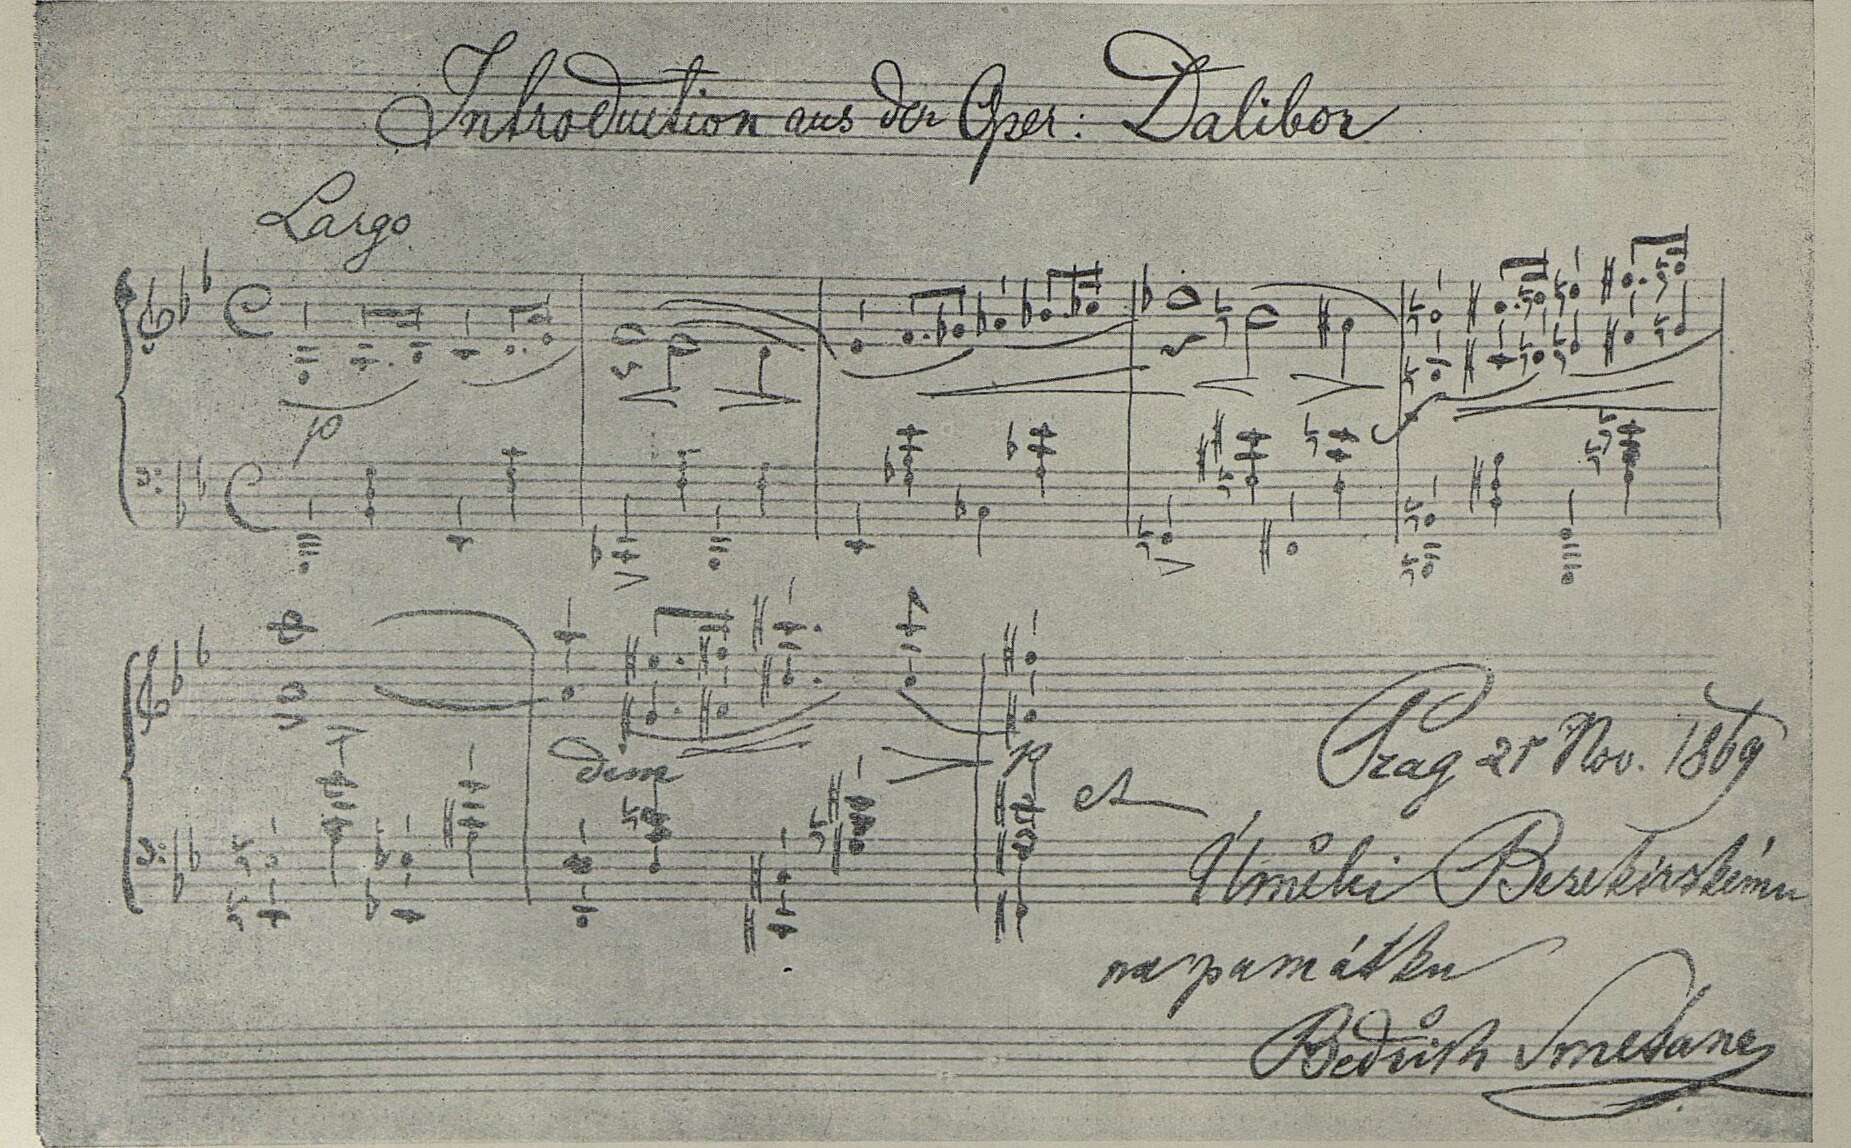 Introduction aus der Oper: Dalibor
Largo
p
dim
p
Prag 21 Nov. 1869
Umělci Besekirskému
na památku
Bedřich Smetana